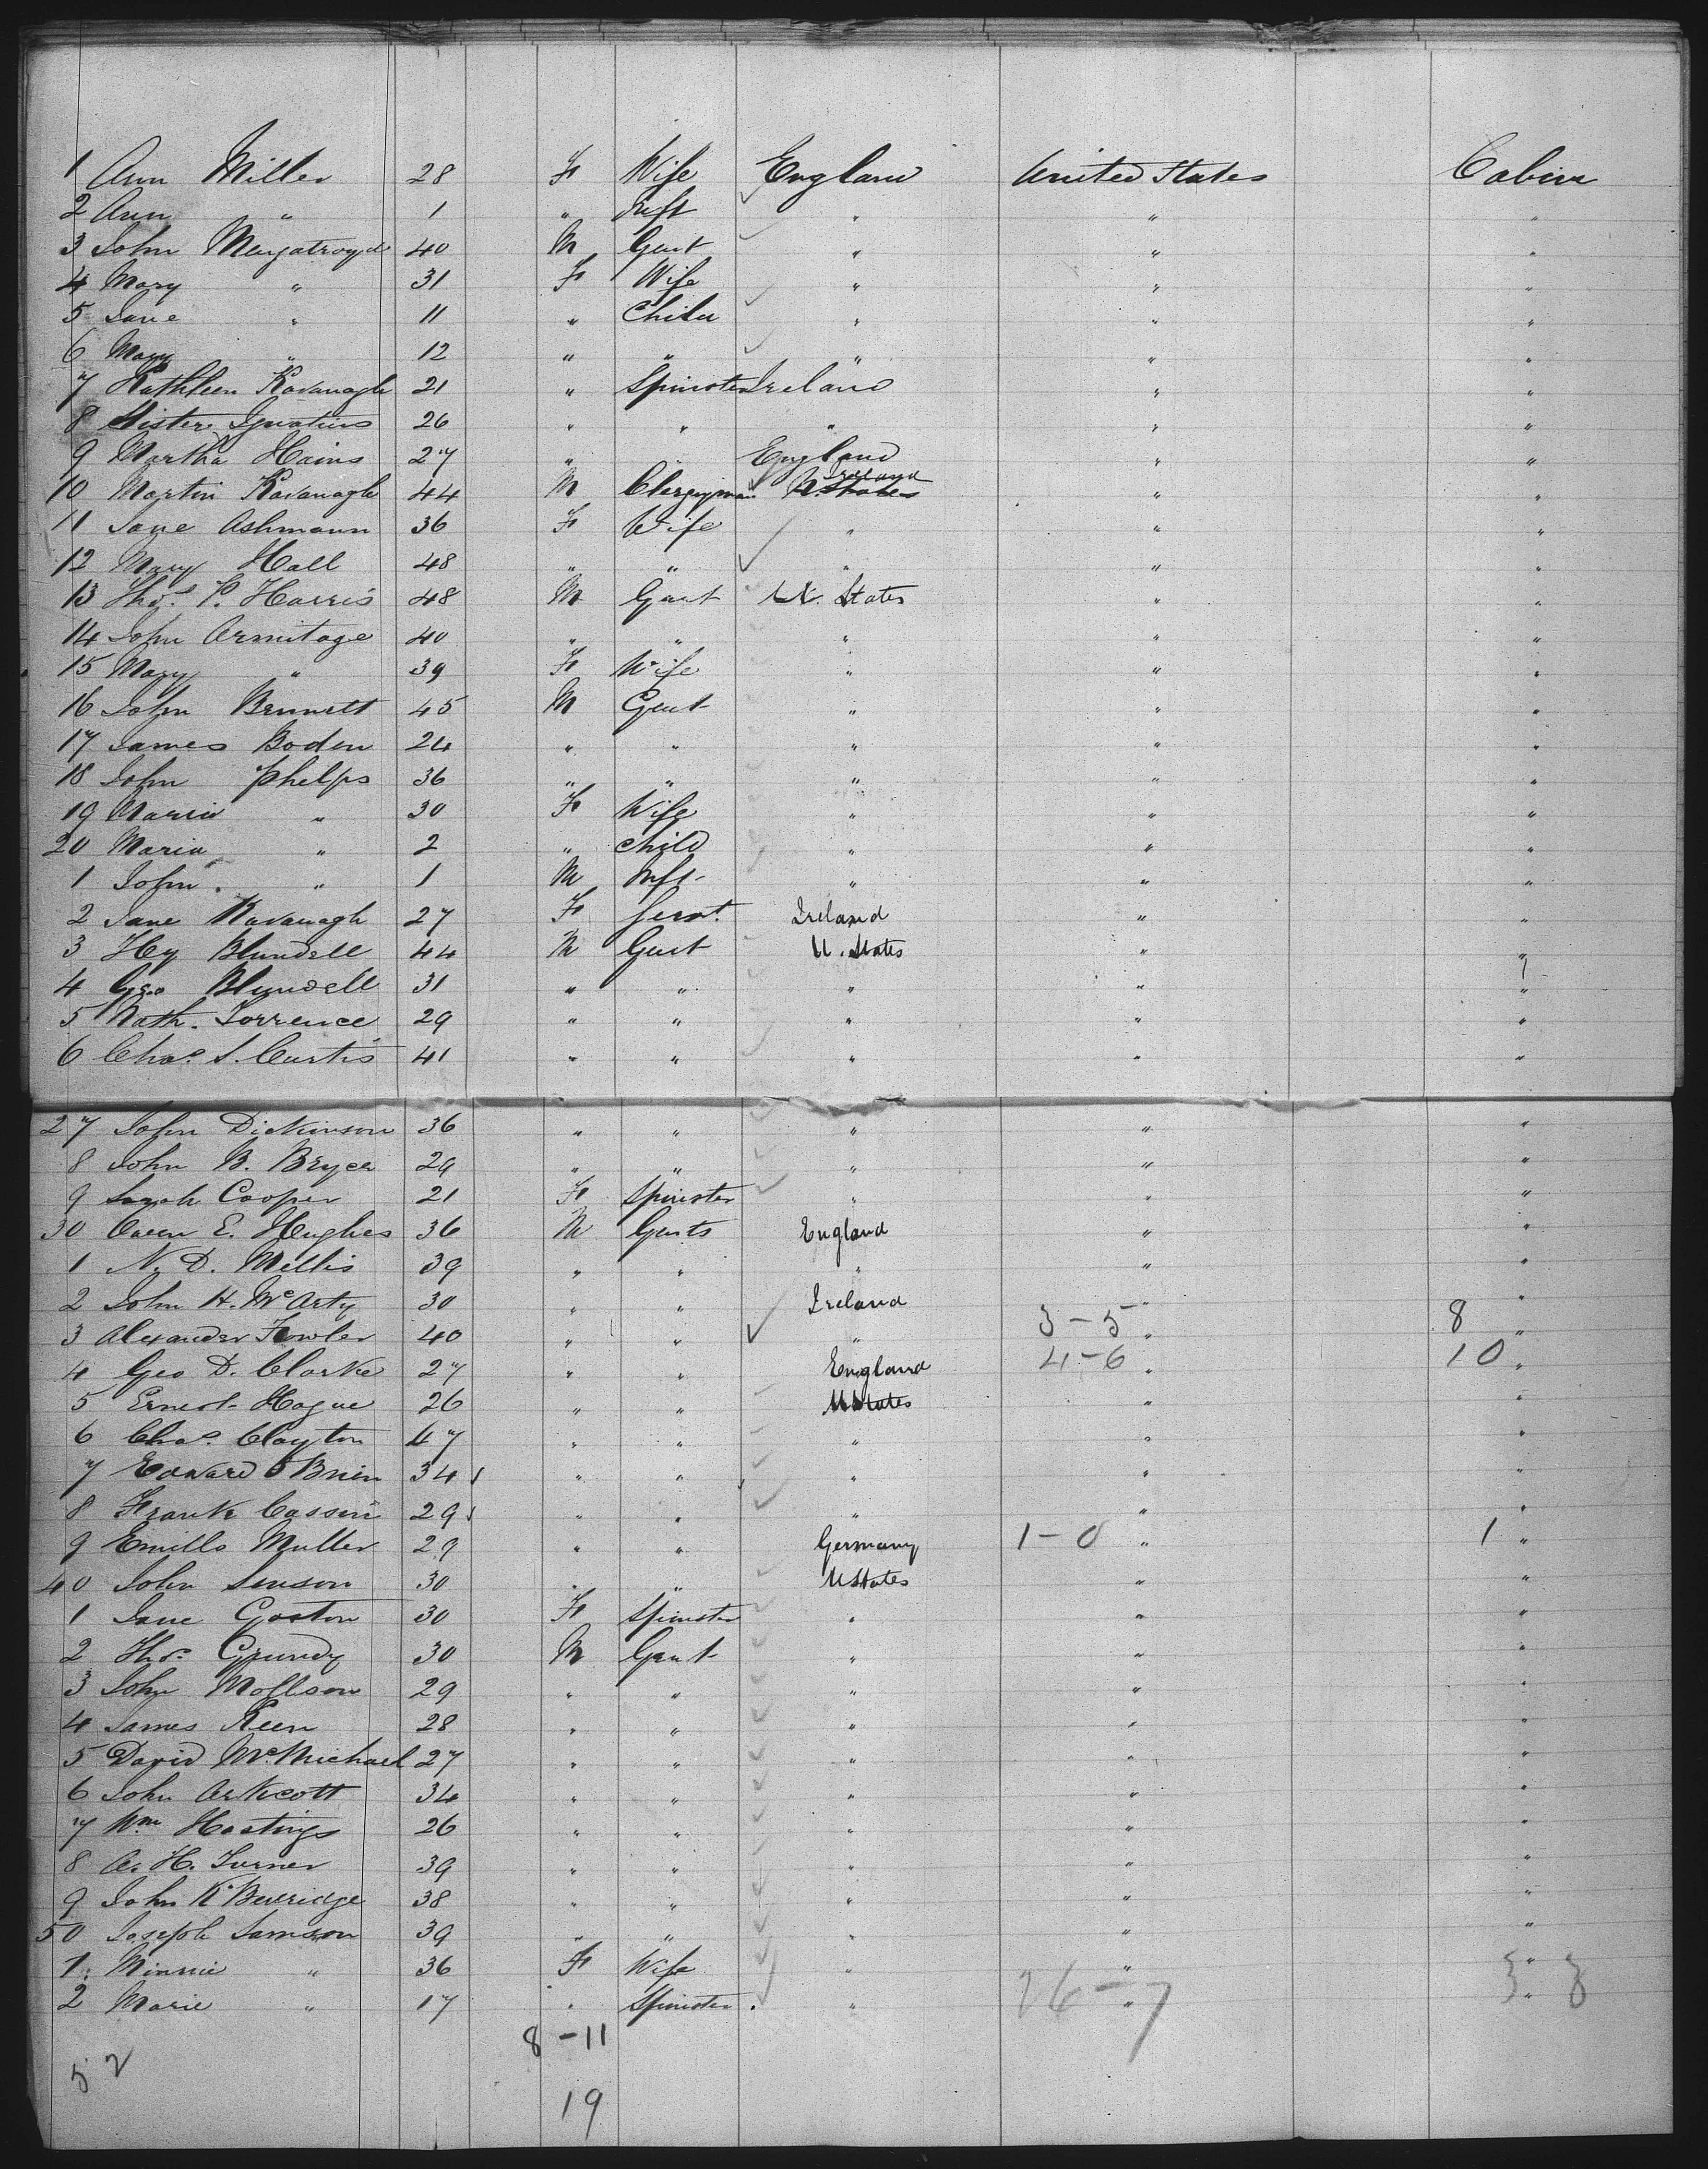 1 Ann Miller 28 F Wife England United States Cabin
2 Ann " 1 " Inft " " "
3 John Murgatroyd 40 M Gent " " "
4 Mary " 31 F Wife " " "
5 Jane " 11 " Child " " "
6 Mary " 12 " " " " "
7 Kathleen Kavanagh 21 " Spinster Ireland " "
8 Sister Ignatius 26 " " " " "
9 Martha Hains 27 " " England " "
10 Martin Kavanagh 44 M Clergyman U. States Ireland " "
11 Jane Ashmann 36 F Wife " " "
12 Mary Hall 48 " " " " "
13 Thos. P. Harris 48 M Gent U. States " "
14 John Armitage 40 " " " " "
15 Mary " 39 F Wife " " "
16 John Bennett 45 M Gent " " "
17 James Boden 24 " " " " "
18 John Phelps 36 " " " " "
19 Maria " 30 F Wife " " "
20 Maria " 2 " Child " " "
1 John " 1 M Inft " " "
2 Jane Kavanagh 27 F Servt. Ireland " "
3 Hy Blundell 44 M Gent U. States " "
4 Geo Blundell 31 " " " " "
5 Nath. Torrence 29 " " " " "
6 Chas. S. Curtis 41 " " " " "
27 John Dickinson 36 " " " " "
8 John B. Bryce 29 " " " " "
9 Sarah Cooper 21 F Spinster " " "
30 Owen E. Hughes 36 M Gents England " "
1 N. D. Millis 39 " " " " "
2 John H. McArty 30 " " Ireland " "
3 Alexander Fowler 40 " " " 3-5 " 8 "
4 Geo D. Clarke 27 " " England 4-6 " 10 "
5 Ernest Hague 26 " " UStates " "
6 Chas. Clayton 47 " " " " "
7 Edward O'Brien 34 " " " " "
8 Frank Cassin 29 " " " " "
9 Emillo Muller 29 " " Germany 1-0 " 1 "
40 John Senson 30 " " UStates " "
1 Jane Gaston 30 F Spinster " " "
2 Thos. Grundy 30 M Gent " " "
3 John Mollison 29 " " " " "
4 James Keen 28 " " " " "
5 David McMichael 27 " " " " "
6 John Arkcott 34 " " " " "
7 Wm Hastings 26 " " " " "
8 A. H. Turner 39 " " " " "
9 John K Berridge 38 " " " " "
50 Joseph Samson 39 " " " " "
1 Minnie " 36 F Wife " " "
2 Marie " 17 " Spinster " 26-7 " "
8-11
52
19